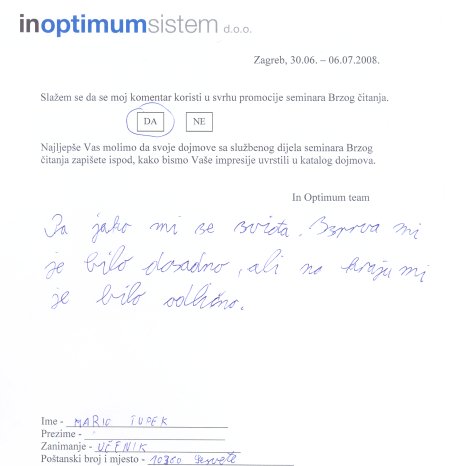 inoptimumsistem d.o.o.
Zagreb, 30.06. – 06.07.2008.
Slažem se da se moj komentar koristi u svrhu promocije seminara Brzog čitanja.
DA NE
Najljepše Vas molimo da svoje dojmove sa službenog dijela seminara Brzog
čitanja zapišete ispod, kako bismo Vaše impresije uvrstili u katalog dojmova.
In Optimum team
Pa jako mi se sviđa. Isprva mi
je bilo dosadno, ali na kraju mi
je bilo odlično.
Ime - MARIO TUPEK
Prezime -
Zanimanje - UČENIK
Poštanski broj i mjesto - 10360 Sesvete